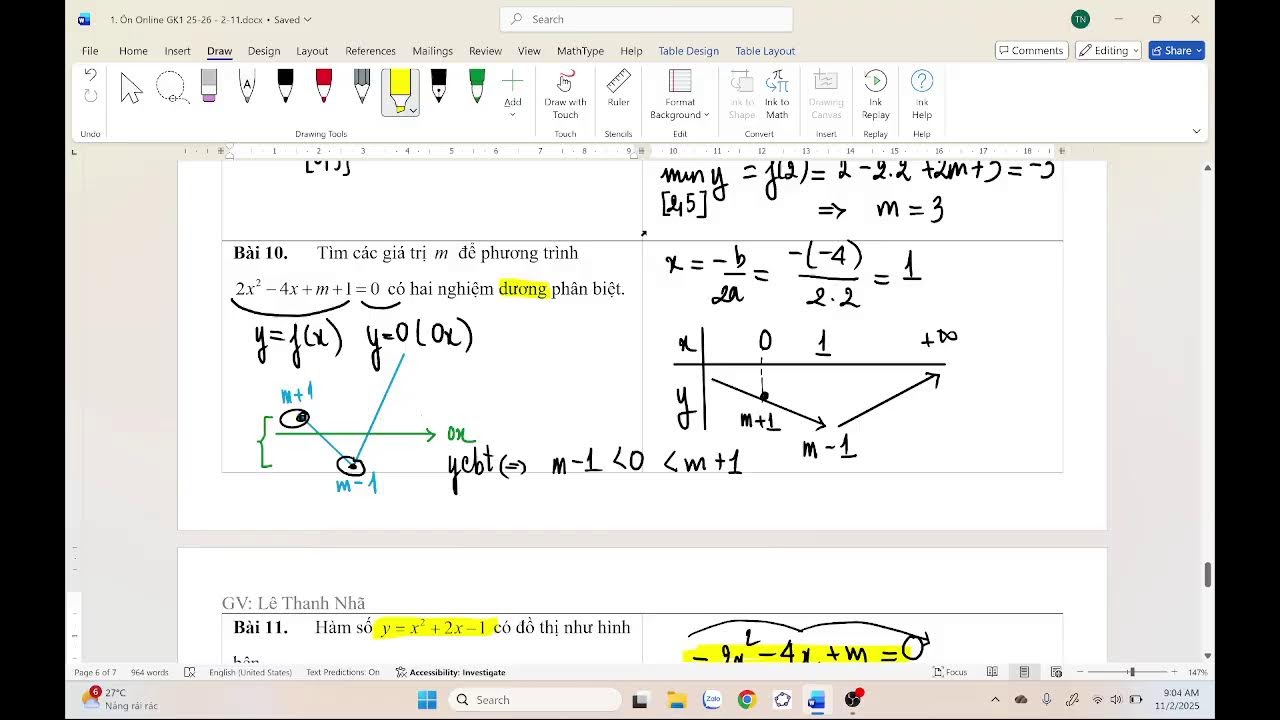 1. Ôn Online GK1 25-26 - 2-11.docx • Saved
Search
TN
File Home Insert Draw Design Layout References Mailings Review View MathType Help Table Design Table Layout
Comments Editing Share
Add
Draw with Touch
Ruler
Format Background
Ink to Shape
Ink to Math
Drawing Canvas
Ink Replay
Ink Help
Undo Drawing Tools Touch Stencils Edit Convert Insert Replay Help
1 2 3 4 5 6 7 8 9 10 11 12 13 14 15 16 17 18
min y = f(2) = 2 - 2.2 + 2m + 3 = -3
[2,5] => m = 3
Bài 10. Tìm các giá trị m để phương trình
2x² − 4x + m + 1 = 0 có hai nghiệm dương phân biệt.
y = f(x) y = 0 (Ox)
m+1
Ox
m-1
ycbt <=> m-1 < 0 < m+1
x = -b/2a = -(-4)/2.2 = 1
x 0 1 +∞
y m+1 m-1
GV: Lê Thanh Nhã
Bài 11. Hàm số y = x² + 2x − 1 có đồ thị như hình
bên
- 2x² - 4x + m = 0
Page 6 of 7 964 words English (United States) Text Predictions: On Accessibility: Investigate Focus 147%
6
27°C
Nắng rải rác
Search
Zalo
9:04 AM
11/2/2025